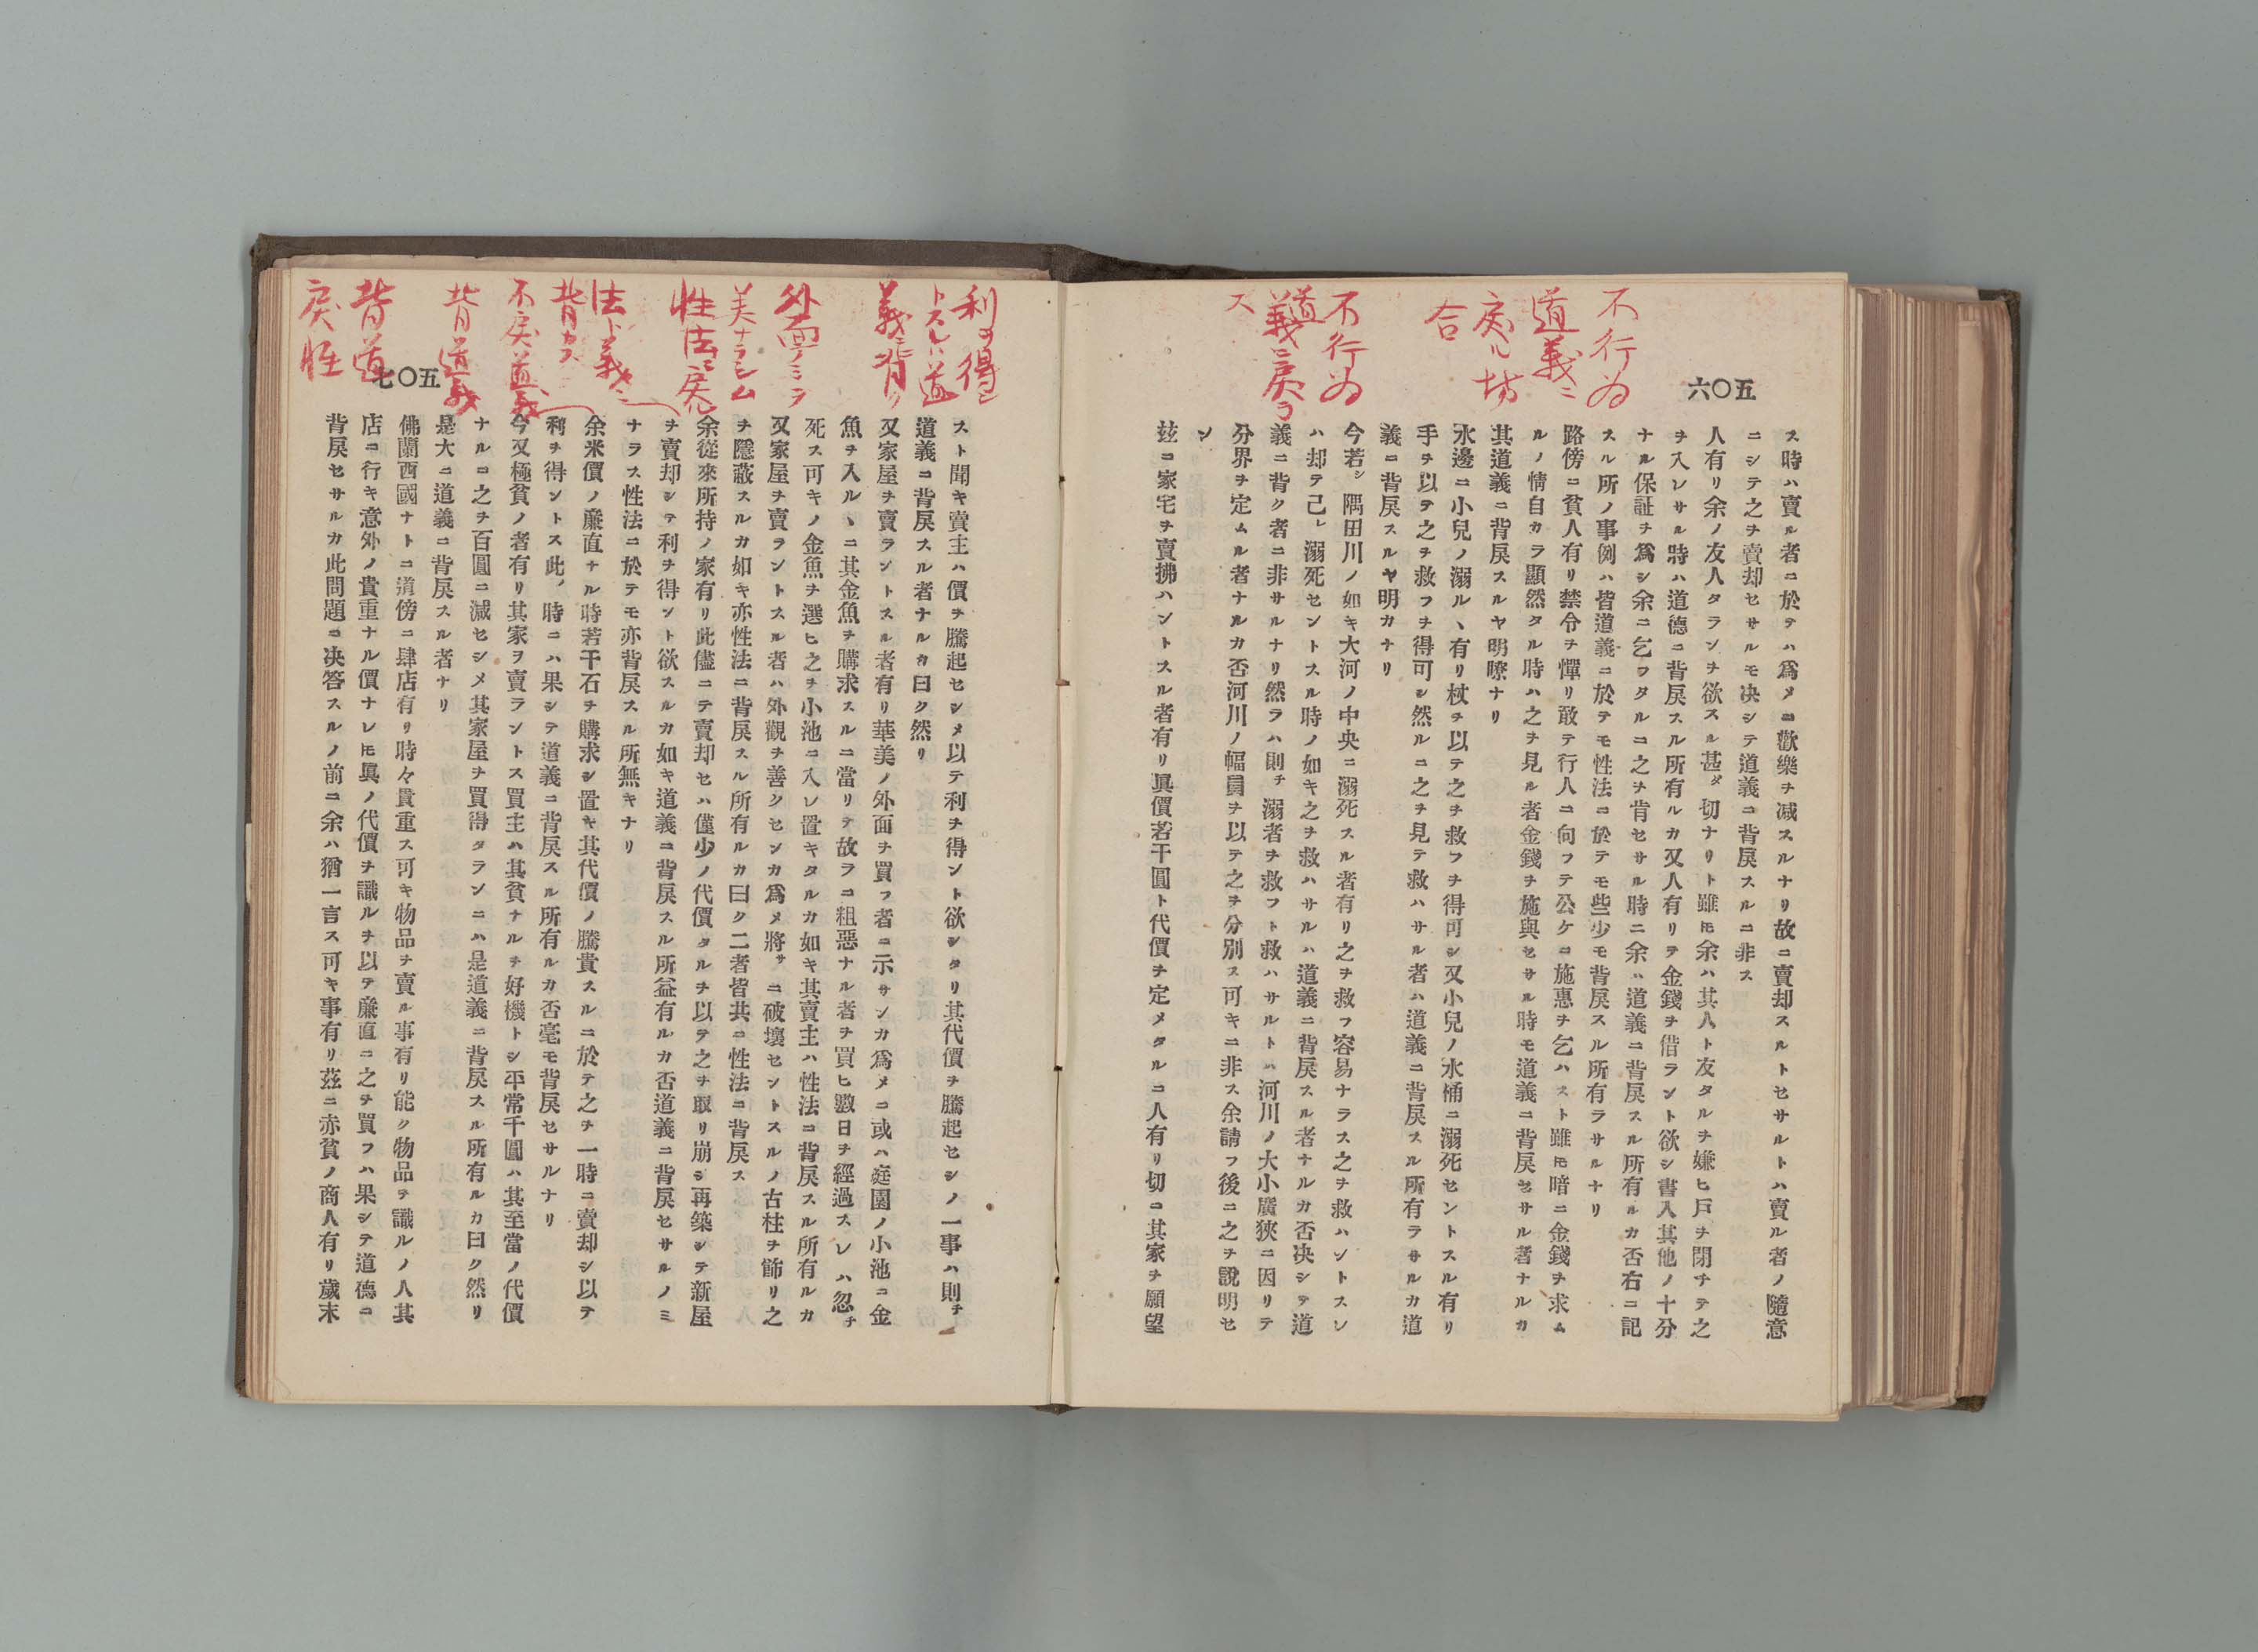 不行為
道義ニ
戻ル場
合
不行為
道
義ニ戻ラ
ス
五〇六
ス時ハ賣ル者ニ於テハ爲メニ歡樂ヲ減スルナリ故ニ賣却スルトセサルトハ賣ル者ノ隨意
ニシテ之ヲ賣却セサルモ决シテ道義ニ背戻スルニ非ス
人有リ余ノ友人タランヲ欲スル甚タ切ナリト雖𪜈余ハ其人ト友タルヲ嫌ヒ戸ヲ閉チテ之
ヲ入レサル時ハ道德ニ背戻スル所有ルカ又人有リテ金錢ヲ借ラント欲シ書入其他ノ十分
ナル保証ヲ爲シ余ニ乞フタルニ之ヲ肯セサル時ニ余ハ道義ニ背戻スル所有ルカ否右ニ記
スル所ノ事例ハ皆道義ニ於テモ性法ニ於テモ些少モ背戻スル所有ラサルナリ
路傍ニ貧人有リ禁令ヲ憚リ敢テ行人ニ向フテ公ケニ施惠ヲ乞ハスト雖𪜈暗ニ金錢ヲ求ム
ルノ情自カラ顯然タル時ハ之ヲ見ル者金錢ヲ施與セサル時モ道義ニ背戻セサル者ナルカ
其道義ニ背戻スルヤ明瞭ナリ
水邊ニ小兒ノ溺ルヽ有リ杖ヲ以テ之ヲ救フヲ得可シ又小兒ノ水桶ニ溺死セントスル有リ
手ヲ以テ之ヲ救フヲ得可シ然ルニ之ヲ見テ救ハサル者ハ道義ニ背戻スル所有ラサルカ道
義ニ背戻スルヤ明カナリ
今若シ隅田川ノ如キ大河ノ中央ニ溺死スル者有リ之ヲ救フ容易ナラス之ヲ救ハントスレ
ハ却テ己レ溺死セントスル時ノ如キ之ヲ救ハサルハ道義ニ背戻スル者ナルカ否决シテ道
義ニ背ク者ニ非サルナリ然ラハ則チ溺者ヲ救フト救ハサルトハ河川ノ大小廣狹ニ因リテ
分界ヲ定ムル者ナルカ否河川ノ幅員ヲ以テ之ヲ分別ス可キニ非ス余請フ後ニ之ヲ說明セ
ン
玆ニ家宅ヲ賣拂ハントスル者有リ眞價若干圓ト代價ヲ定メタルニ人有リ切ニ其家ヲ願望
利ヲ得ン
トスルハ道
義ニ背ク
外面ノミヲ
美ナラシム
性法ニ戻ル
法ト義ニ
背カス
不戻道義
背道義
背道
戻性
五〇七
スト聞キ賣主ハ價ヲ騰起セシメ以テ利ヲ得ント欲シタリ其代價ヲ騰起セシノ一事ハ則チ
道義ニ背戻スル者ナルカ曰ク然リ
又家屋ヲ賣ラントスル者有リ華美ノ外面ヲ買フ者ニ示サンカ爲メニ或ハ庭園ノ小池ニ金
魚ヲ入ルヽニ其金魚ヲ購求スルニ當リテ故ラニ粗惡ナル者ヲ買ヒ數日ヲ經過スレハ忽チ
死ス可キノ金魚ヲ選ヒ之ヲ小池ニ入レ置キタルカ如キ其賣主ハ性法ニ背戻スル所有ルカ
又家屋ヲ賣ラントスル者ハ外觀ヲ善クセンカ爲メ將サニ破壞セントスルノ古柱ヲ飾リ之
ヲ隱蔽スルカ如キ亦性法ニ背戻スル所有ルカ曰ク二者皆共ニ性法ニ背戻ス
余從來所持ノ家有リ此儘ニテ賣却セハ僅少ノ代價タルヲ以テ之ヲ取リ崩シ再築シテ新屋
ヲ賣却シテ利ヲ得ント欲スルカ如キ道義ニ背戻スル所益有ルカ否道義ニ背戻セサルノミ
ナラス性法ニ於テモ亦背戻スル所無キナリ
余米價ノ廉直ナル時若干石ヲ購求シ置キ其代價ノ騰貴スルニ於テ之ヲ一時ニ賣却シ以テ
利ヲ得ントス此ノ時ニハ果シテ道義ニ背戻スル所有ルカ否毫モ背戻セサルナリ
今又極貧ノ者有リ其家ヲ賣ラントス買主ハ其貧ナルヲ好機トシ平常千圓ハ其至當ノ代價
ナルニ之ヲ百圓ニ減セシメ其家屋ヲ買得タランニハ是道義ニ背戻スル所有ルカ曰ク然リ
是大ニ道義ニ背戻スル者ナリ
佛蘭西國ナトニ道傍ニ肆店有リ時々貴重ス可キ物品ヲ賣ル事有リ能ク物品ヲ識ルノ人其
店ニ行キ意外ノ貴重ナル價ナレ𪜈眞ノ代價ヲ識ルヲ以テ廉直ニ之ヲ買フハ果シテ道德ニ
背戻セサルカ此問題ニ决答スルノ前ニ余ハ猶一言ス可キ事有リ茲ニ赤貧ノ商人有リ歲末